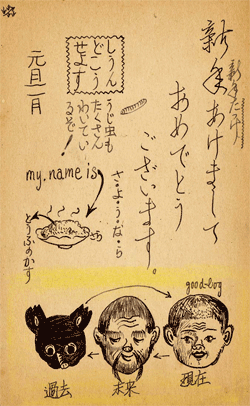 新年あけまして
おめでとう
ございます。
さ・よ・う・な・ら
うじ虫も
たくさん
わいてい
るぞ!
しうん
どこう
せよす
元旦一月
my.name is
とうふのかす
good-boy
過去
未来
現在